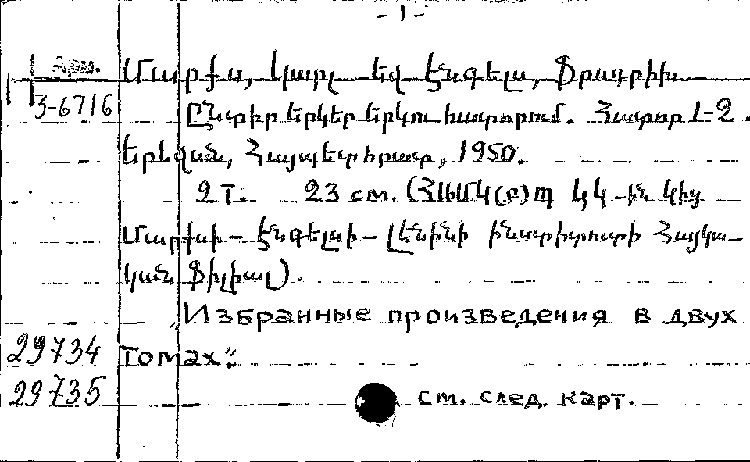 - 1 -
Հրտ.
Մարքս, Կարլ եվ Էնգելս, Ֆրադրիխ
3-6716
Ընտիր երկեր երկու հատորում. Հատոր 1-2.
Երևան, Հայպետհրատ, 1950.
2 т. 23 см. (ՀԿԿ ԿԿ-ին կից
Մարքսի-Էնգելսի-Լենինի Ինստիտուտի Հայկա-
կան Ֆիլիալ).
"Избранные произведения в двух
29734 томах".
29735 см. след. карт.